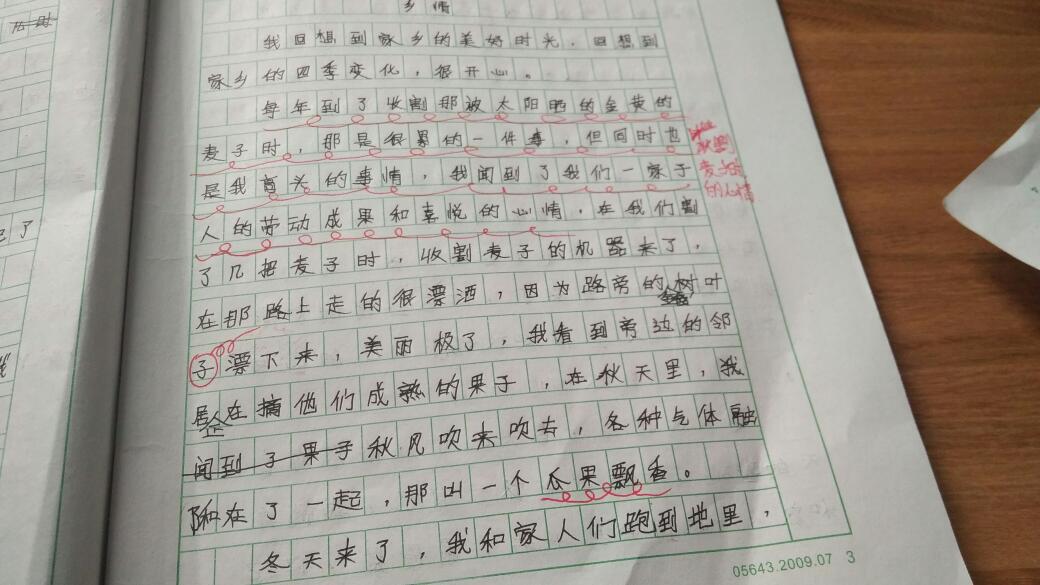 乡情
我回想到家乡的美好时光，回想到
家乡的四季变化，很开心。
每年到了收割那被太阳晒的金黄的
麦子时，那是很累的一件事，但同时也
是我首头的事情，我闻到了我们一家子
人的劳动成果和喜悦的心情，在我们割
了几把麦子时，收割麦子的机器来了，
在那路上走的很漂洒，因为路旁的树叶
子漂下来，美丽极了，我看到旁边的邻
居在摘他们成熟的果子，在秋天里，我
闻到了果子秋风吹来吹去，各种气体融
和在了一起，那叫一个瓜果飘香。
冬天来了，我和家人们跑到地里，
收割
麦子
的心情
05643.2009.07 3